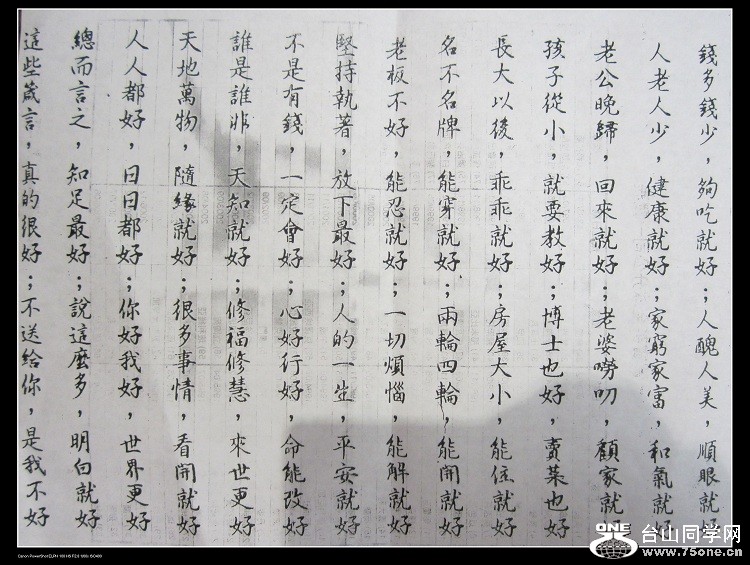 錢多錢少，夠吃就好；人醜人美，順眼就好
人老人少，健康就好；家窮家富，和氣就好
老公晚歸，回來就好；老婆嘮叨，顧家就
孩子從小，就要教好；博士也好，賣菜也好
長大以後，乖乖就好；房屋大小，能住就好
名不名牌，能穿就好；兩輪四輪，能開就好
老板不好，能忍就好；一切煩惱，能解就好
堅持執著，放下最好；人的一生，平安就好
不是有錢，一定會好；心好行好，命能改好
誰是誰非，天知就好；修福修慧，來世更好
天地萬物，隨緣就好；很多事情，看開就好
人人都好，日日都好；你好我好，世界更好
總而言之，知足最好；說這麼多，明白就好
這些箴言，真的很好；不送給你，是我不好
ONE
台山同学网
www.75one.cn